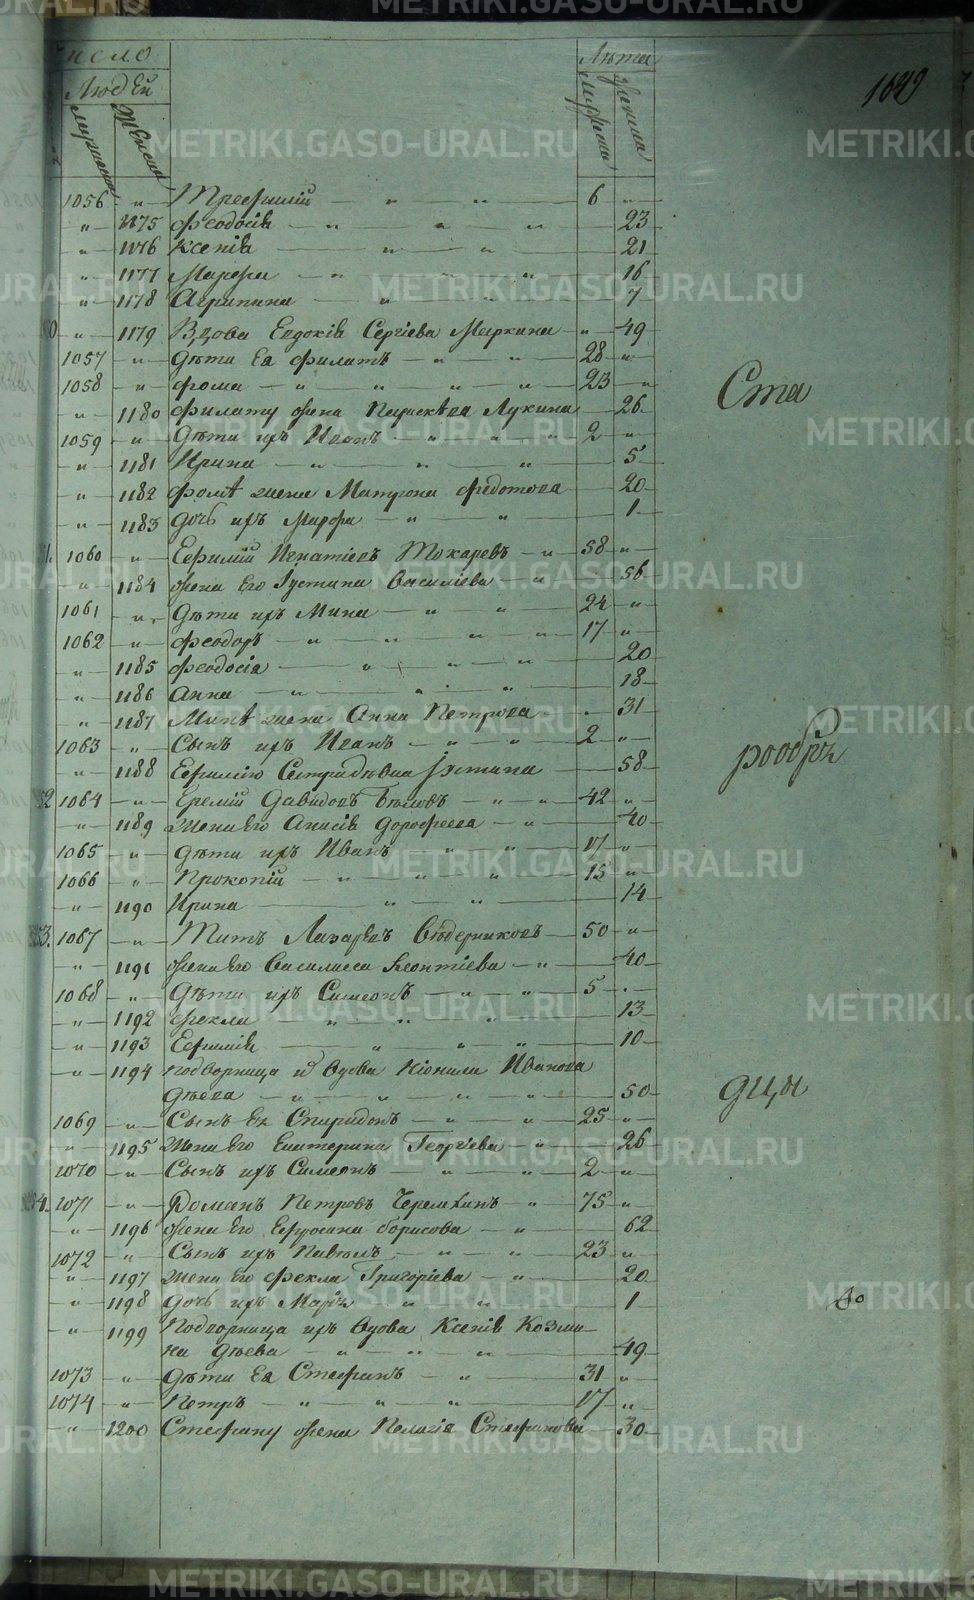 число Лѣта
Людей
мужеска женска мужеска женска
1029
1056 " Трефилій " " 6 "
" 1175 Феодосія " " " 23
" 1176 Ксенія " " 21
" 1177 Марфа " " 16
" 1178 Агрипина " " 7
" 1179 Вдова Евдокія Сергіева Маркина " 49
1057 " Дѣти Ея Филатъ " " 28 "
1058 " Фома " " " " 23 "
Ста
" 1180 Филату жена Параскева Лукина 26
1059 " Дѣти ихъ Иванъ " " " 2 "
" 1181 Ирина " " " 5
" 1182 Фомѣ жена Матрона Федотова 20
" 1183 Дочь ихъ Марфа " " 1
1060 " Ефимій Игнатіевъ Токаревъ " 58 "
" 1184 жена Его Густина Василіева " 56
1061 " Дѣти ихъ Мина " " 24 "
1062 " Феодоръ " " " " 17 "
" 1185 Феодосія " " " 20
" 1186 Анна " " 18
" 1187 Минѣ жена Анна Петрова " 31
1063 " Сынъ ихъ Иванъ " " 2 "
рообръ
" 1188 Ефимію 58
52 1064 " Еремій Давидовъ " " 42 "
" 1189 Жена Его Анисія Дорофеева " 40
1065 " Дѣти ихъ Иванъ " " 17 "
1066 " Прокопій " " " 15 "
" 1190 Ирина " " 14
53. 1067 " Титъ Лазаревъ 50 "
" 1191 жена Его Василиса Леонтіева " 40
1068 " Дѣти ихъ Симеонъ " " 5 "
" 1192 Фекла " " " 13
" 1193 Ефимія " " " 10
" 1194 Подворница и Вдова Кіонила Иванова
Дѣева " " " " 50
дцы
1069 " Сынъ Ея Спиридонъ " " 25 "
" 1195 Жена Его Екатерина Георгіева " 26
1070 " Сынъ ихъ Симеонъ " " 2 "
54. 1071 " Романъ Петровъ " 75 "
" 1196 жена Его Ефросина Борисова " 62
1072 " Сынъ ихъ Павелъ " " 23 "
" 1197 Жена Его Фекла Григоріева " 20
" 1198 Дочь ихъ Марія " " 1
" 1199 Подворница ихъ Вдова Ксенія Козми
на Дѣева " " " 49
1073 " Дѣти Ея Стефанъ " 31 "
1074 " Петръ " " " 17 "
" 1200 Стефану жена Пелагія Стефанова 30
METRIKI.GASO-URAL.RU